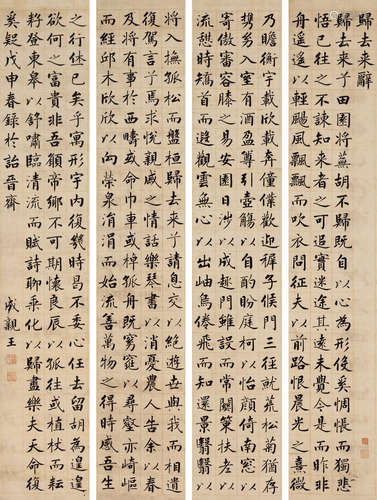 歸去來辭
歸去來兮田園將蕪胡不歸既自以心為形役奚惆悵而獨悲
悟已往之不諫知來者之可追實迷途其遠未覺今是而昨非
舟遙遙以輕颺風飄飄而吹衣問征夫以前路恨晨光之熹微
乃瞻衡宇載欣載奔僮僕歡迎稚子候門三徑就荒松菊猶存
攜幼入室有酒盈尊引壺觴以自酌眄庭柯以怡顏倚南窗以
寄傲審容膝之易安園日涉以成趣門雖設而常關策扶老以
流憩時矯首而遐觀雲無心以出岫鳥倦飛而知還景翳翳以
將入撫孤松而盤桓歸去來兮請息交以絕遊世與我而相遺
復駕言兮焉求悅親戚之情話樂琴書以消憂農人告余以春
及將有事於西疇或命巾車或棹孤舟既窈窕以尋壑亦崎嶇
而經邱木欣欣以向榮泉涓涓而始流善萬物之得時感吾生
之行休已矣乎寓形宇內復幾時曷不委心任去留胡為遑遑
欲何之富貴非吾願帝鄉不可期懷良辰以孤往或植杖而耘
耔登東皋以舒嘯臨清流而賦詩聊乘化以歸盡樂夫天命復
奚疑戊申春錄於詒晉齋
成親王